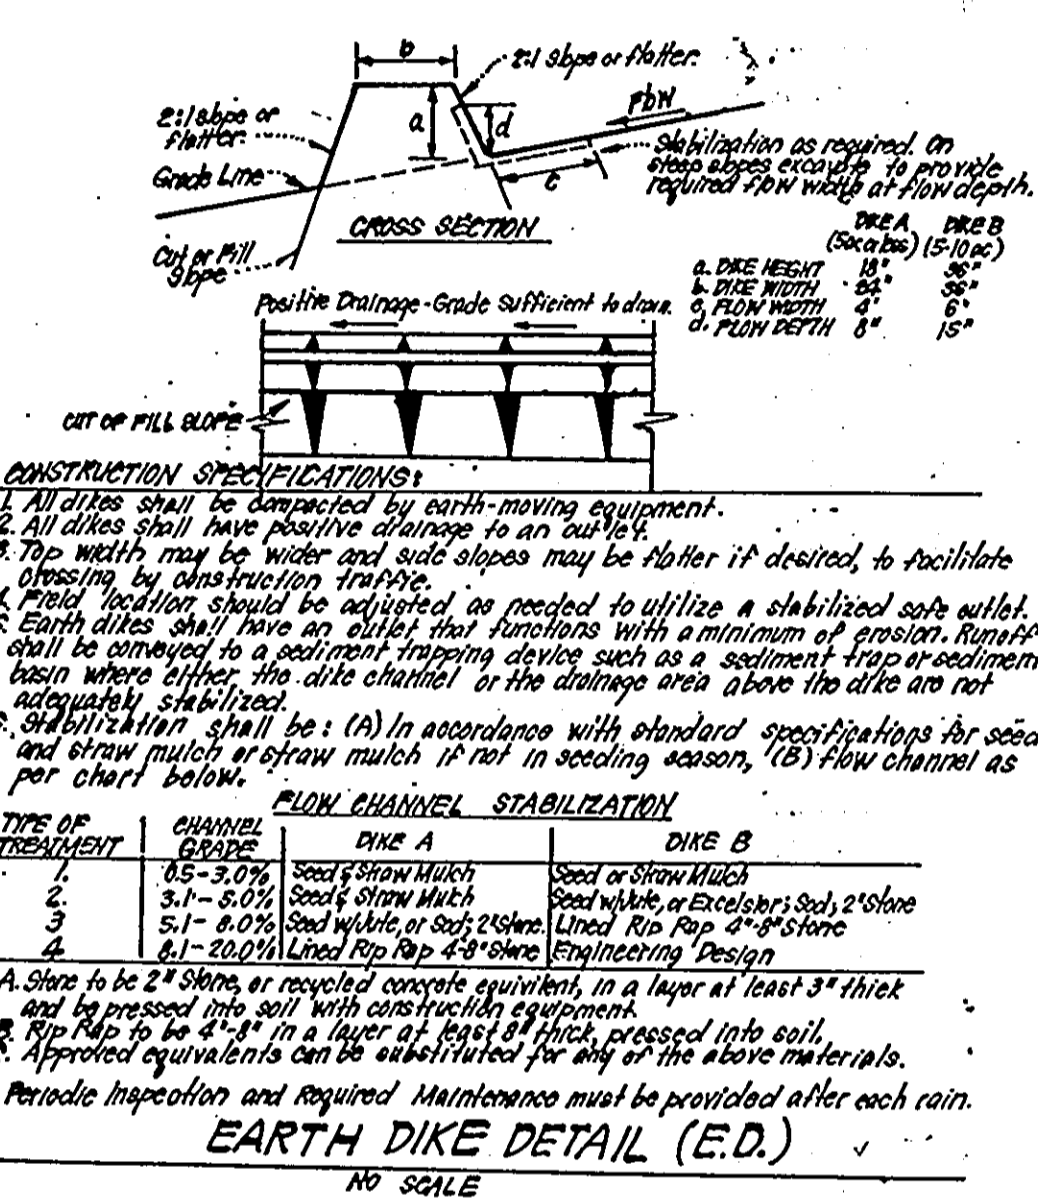 b
2:1 slope or flatter.
2:1 slope or
flatter.
a
d
Flow
Stabilization as required. On
steep slopes excavate to provide
required flow width at flow depth.
c
Grade Line
CROSS SECTION
Cut or Fill
Slope
DIKE A DIKE B
(5ac or less) (5-10 ac)
a. DIKE HEIGHT 18" 36"
b. DIKE WIDTH 24" 36"
c. FLOW WIDTH 4' 6'
d. FLOW DEPTH 8" 15"
Positive Drainage - Grade Sufficient to drain.
CUT OF FILL SLOPE
CONSTRUCTION SPECIFICATIONS:
1. All dikes shall be compacted by earth-moving equipment.
2. All dikes shall have positive drainage to an outlet.
3. Top width may be wider and side slopes may be flatter if desired, to facilitate
crossing by construction traffic.
4. Field location should be adjusted as needed to utilize a stabilized safe outlet.
5. Earth dikes shall have an outlet that functions with a minimum of erosion. Runoff
shall be conveyed to a sediment trapping device such as a sediment trap or sedimen
basin where either the dike channel or the drainage area above the dike are not
adequately stabilized.
6. Stabilization shall be: (A) In accordance with standard specifications for seed
and straw mulch or straw mulch if not in seeding season, (B) flow channel as
per chart below.
FLOW CHANNEL STABILIZATION
TYPE OF TREATMENT CHANNEL GRADE DIKE A DIKE B
1. 0.5-3.0% Seed & Straw Mulch Seed or Straw Mulch
2. 3.1-5.0% Seed & Straw Mulch Seed w/Jute, or Excelsior; Sod; 2" Stone
3 5.1-8.0% Seed w/Jute, or Sod; 2" Stone. Lined Rip Rap 4"-8" Stone
4 8.1-20.0% Lined Rip Rap 4-8" Stone Engineering Design
A. Stone to be 2" Stone, or recycled concrete equivilent, in a layer at least 3" thick
and be pressed into soil with construction equipment.
B. Rip Rap to be 4"-8" in a layer at least 8" thick, pressed into soil.
C. Approved equivalents can be substituted for any of the above materials.
Periodic Inspection and Required Maintenance must be provided after each rain.
EARTH DIKE DETAIL (E.D.)
NO SCALE